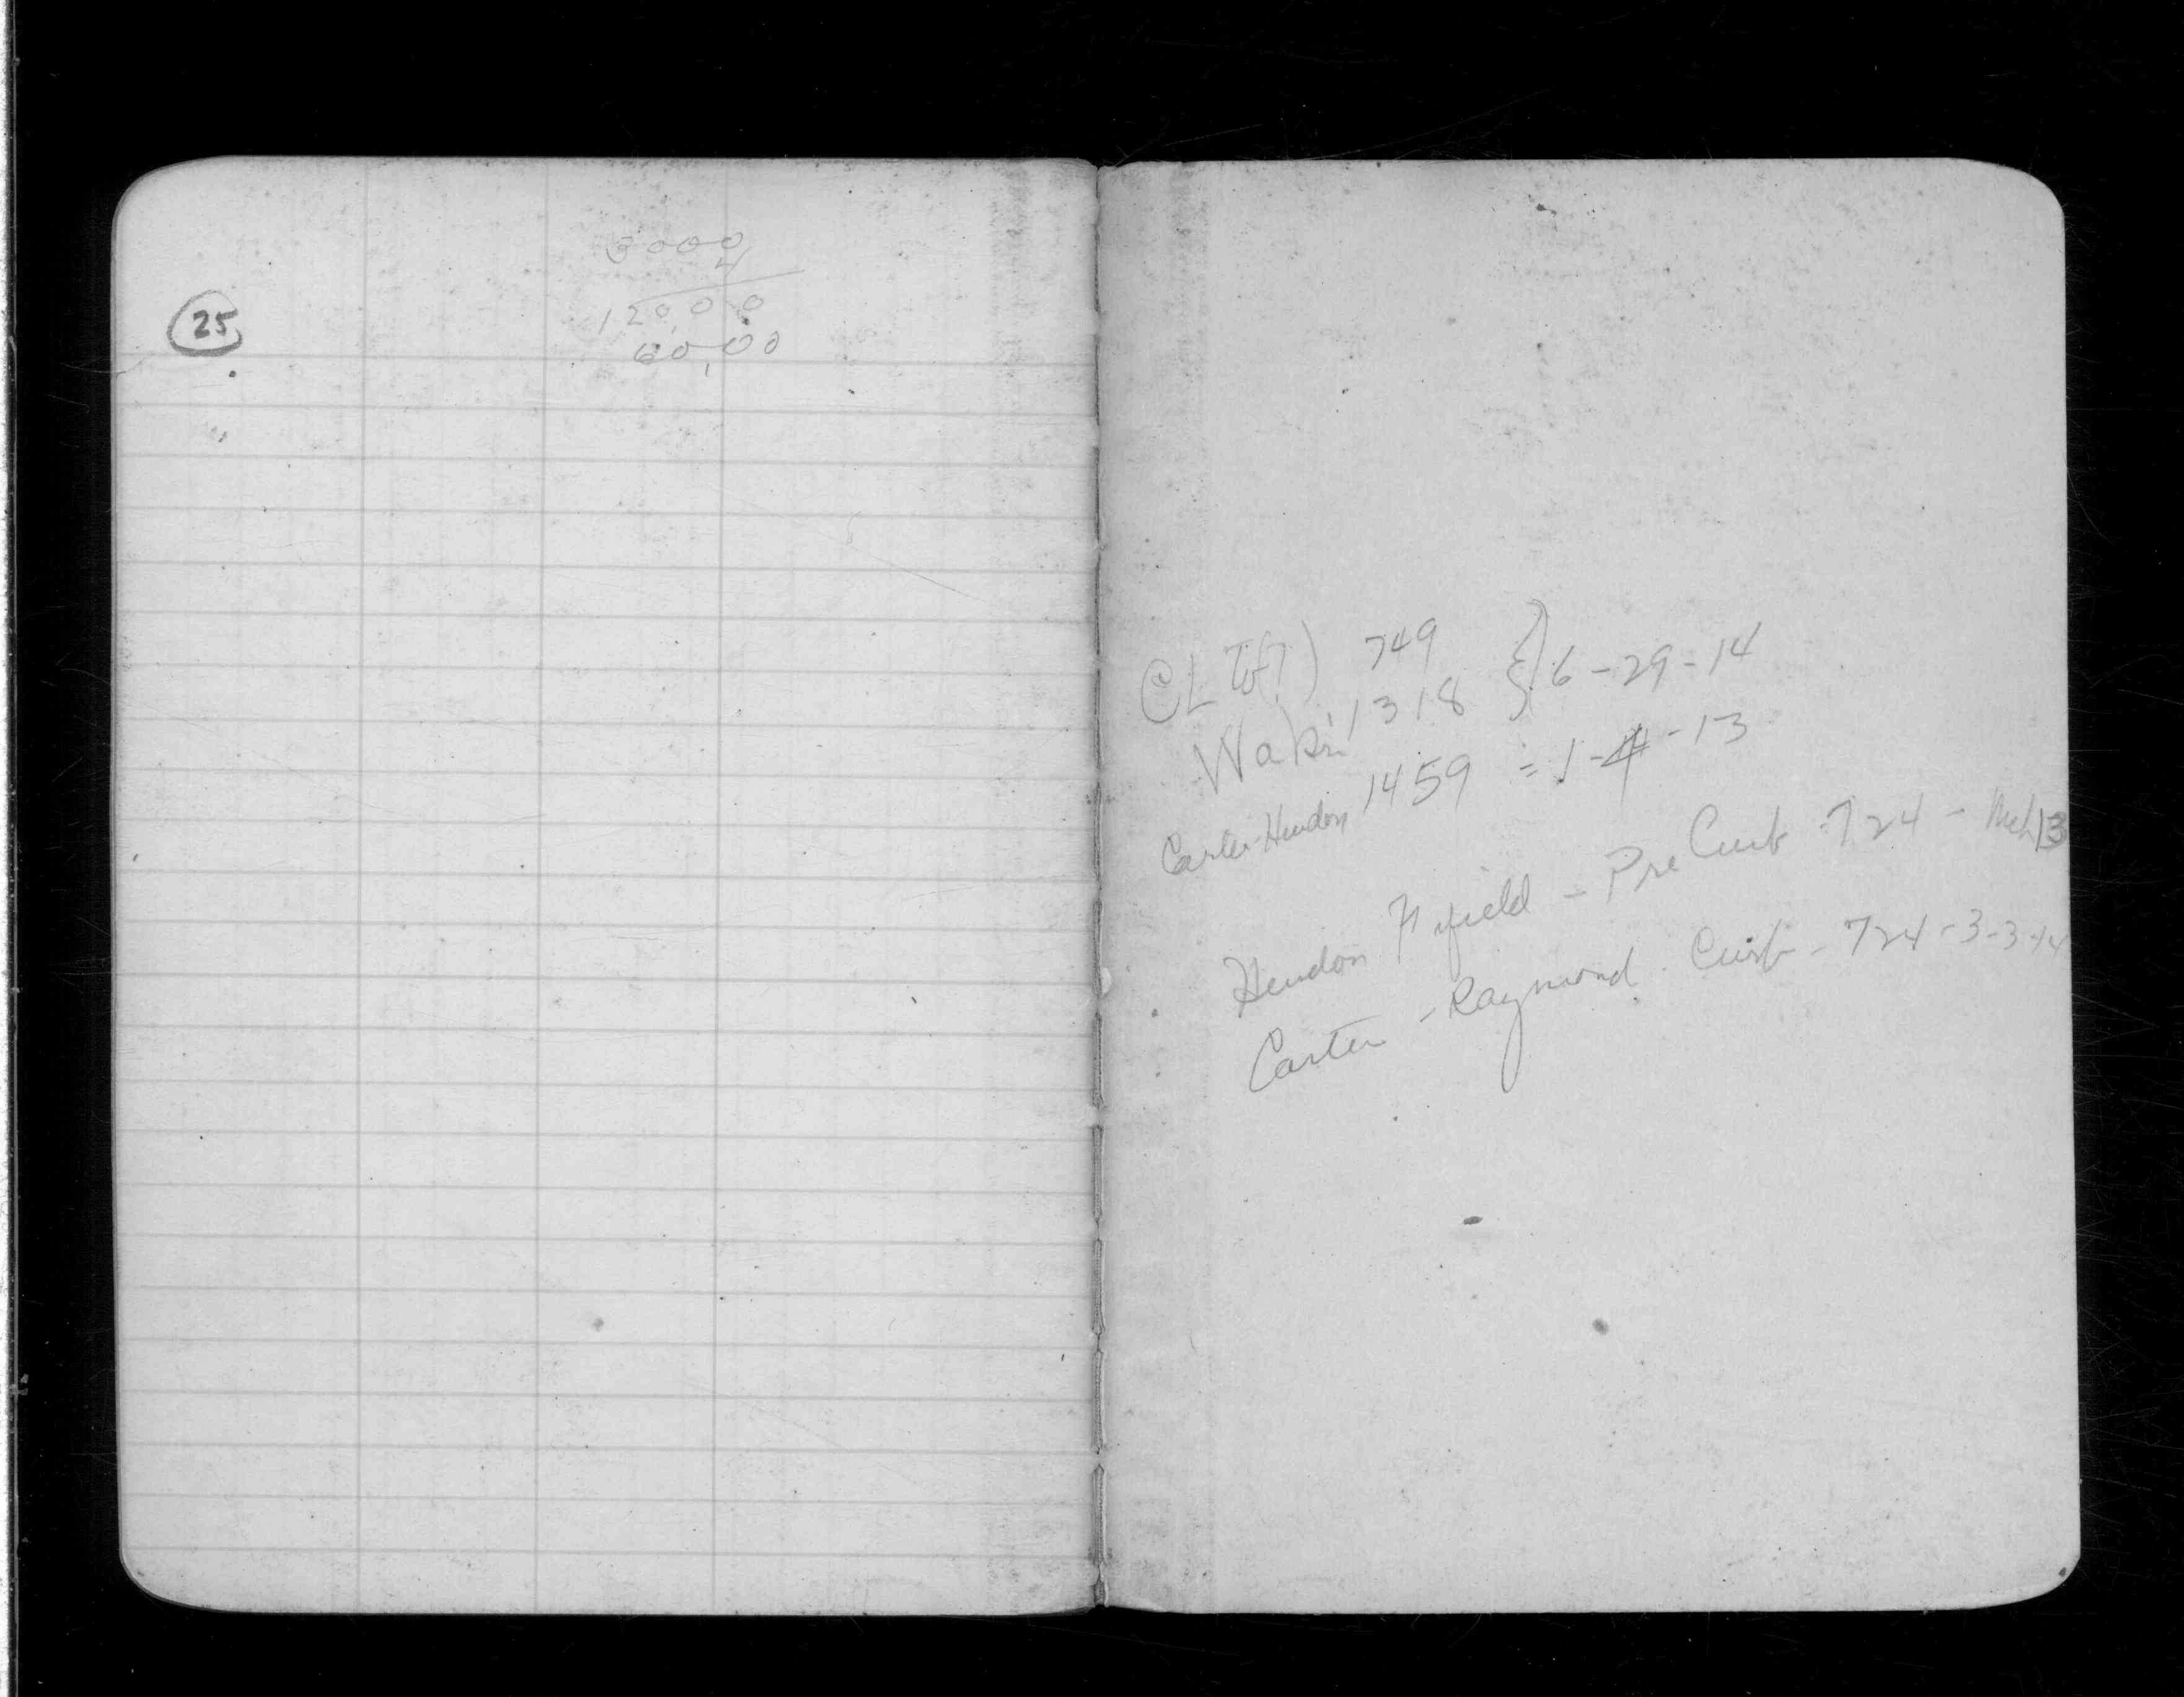 25
3000
4
12000
60,00
CL 749
1318 } 6-29-14
Carter-Hendon 1459 = 1-4-13
Hendon Fifield - Pre Curb 724 - Mch 13
Carter - Raymond Curb - 724 - 3-3-14